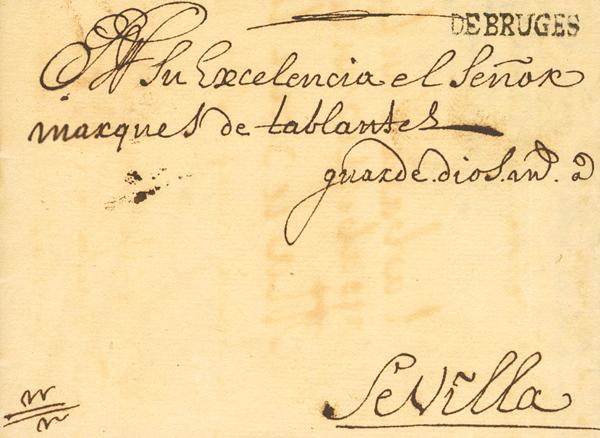 DE BRUGES
A Su Excelencia el Señor
marques de tablantes
guarde. dios. m^s. a^s
Sevilla